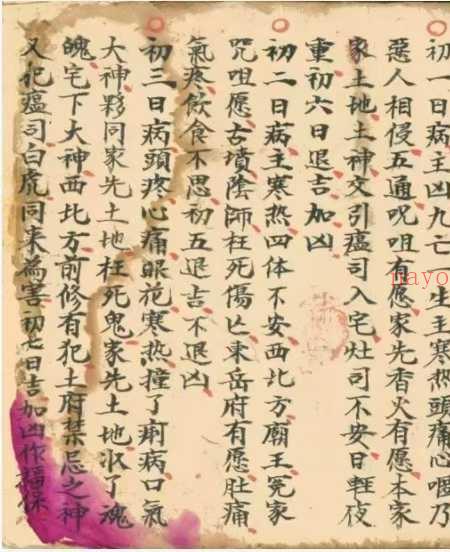 初一日病主凶九亡一生主寒热頭痛心嘔乃
惡人相侵五通呪咀有愿家先香火有愿本家
家土地土神交引瘟司入宅灶司不安日輕夜
重初六日退吉加凶
初二日病主寒热四体不安西北方廟王冤家
咒咀愿古墳陰師枉死傷亡東岳府有愿肚痛
氣疼飲食不思初五退吉不退凶
初三日病頭疼心痛眼花寒热撞了痢病口氣
大神夥同家先土地枉死鬼家先土地收了魂
魄宅下大神西北方前修有犯土府禁忌之神
又犯瘟司白虎同来為害初七日吉加凶作福保
nayo